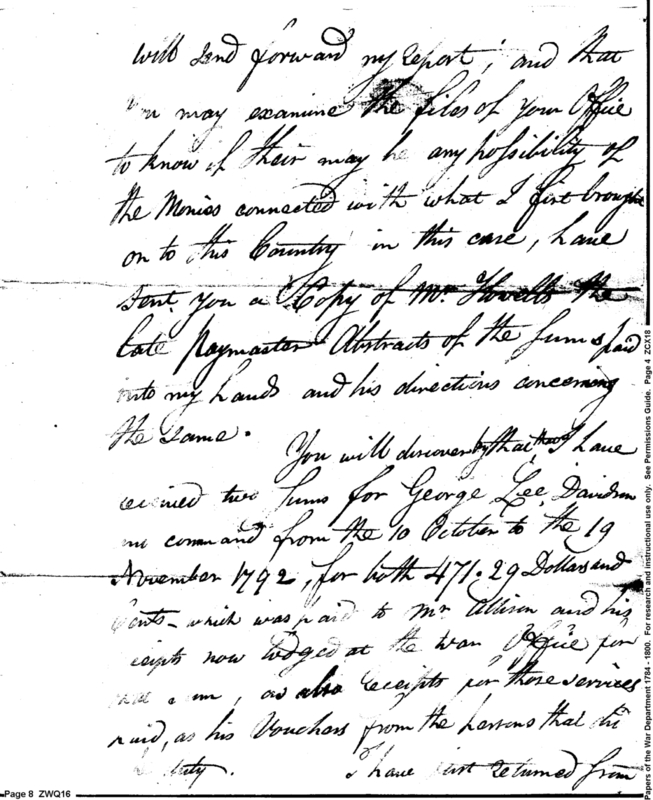 will send forward my report; and that
may examine the files of your Office
to know if their may be any possibility of
the Monies connected with what I first brought
on to this Country in this case, have
sent you a Copy of Mr. Howells the
late Paymaster Abstracts of the sums paid
into my hands and his directions concerning
the same.
You will discover by that, that I have
two sums for George Lee Davidson
command from the 10 October to the 19
November 1792, for both 471.29 Dollars and
Cents - which was paid to Mr Allison and his
now lodged at the War Office for
as also receipts for those services
paid, as his Vouchers from the persons that did
I have just returned from
Page 8 ZWQ16
Papers of the War Department 1784 - 1800. For research and instructional use only. See Permissions Guide. Page 4 ZCX18